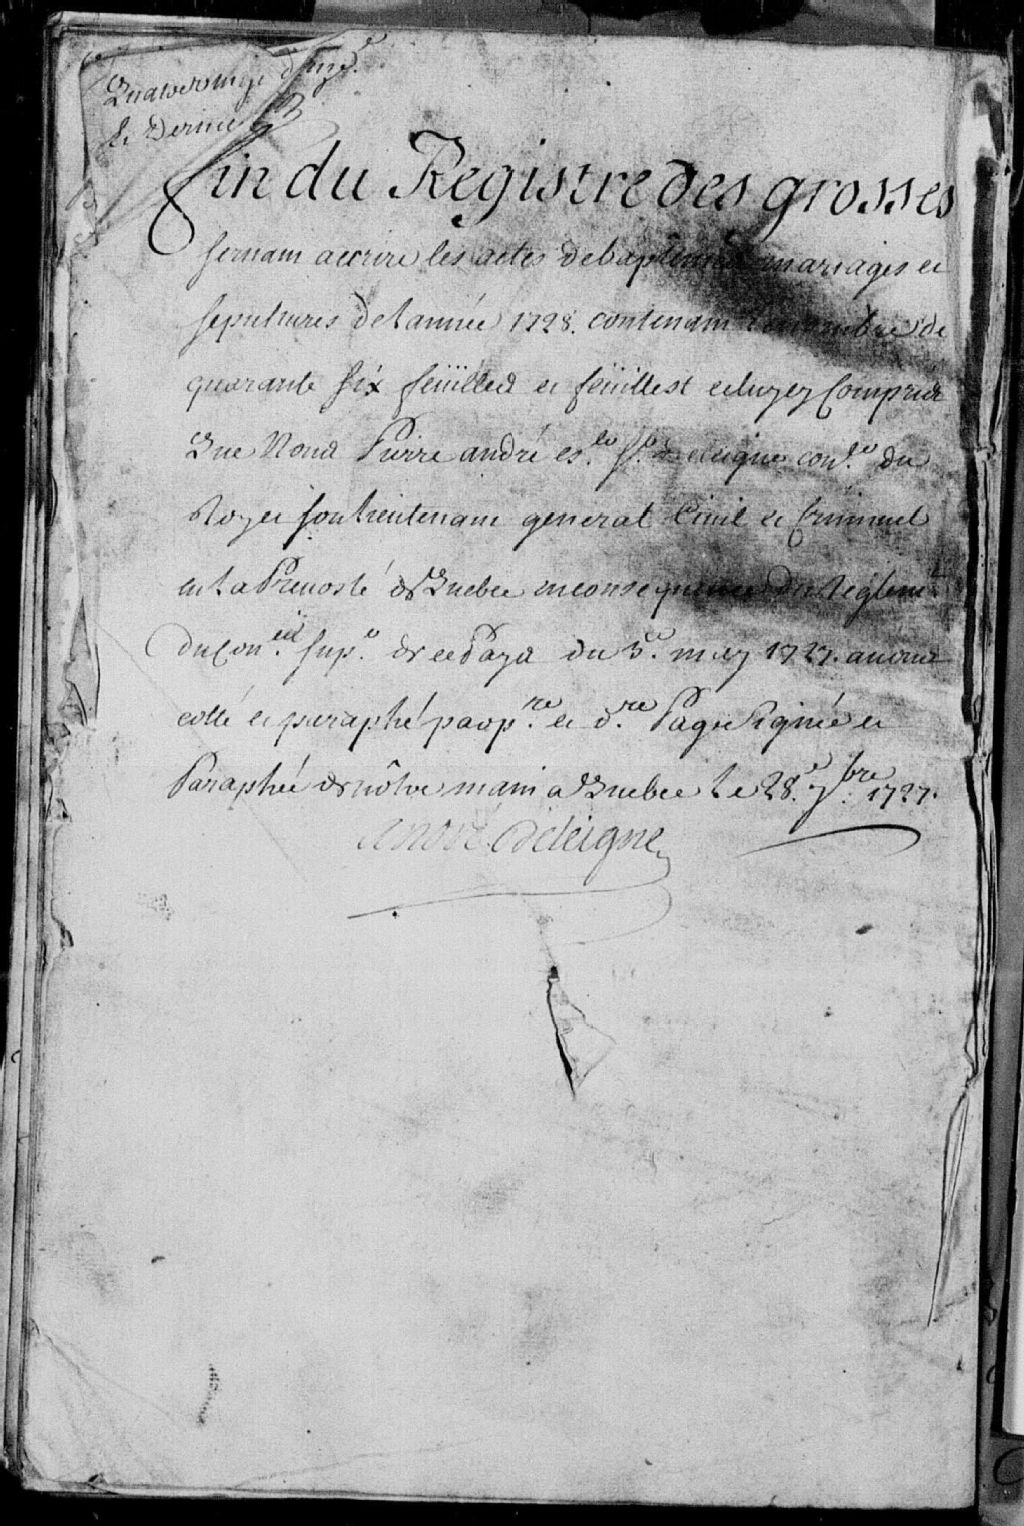 Quatervingt douze.e
Et Dernier
fin du Registre des grosses
servant a ecrire les actes de baptemes mariages et
sepultures de l'année 1728. contenant le nombre de
quarante six feüilles et feüillest celuy cy Compris
Que Nous Pierre andré es.er s.r de leigne con.er du
Roy et son lieutenant general Civil et Criminel
en La Prevosté de Quebec en consequence du Réglem.t
du Con.eil Sup.r de ce Pays du 5.e may 1727. avons
cotté et paraphé par p.re et d.re Page Signée et
Paraphée de nôtre main a Quebec le 28.e 7.bre 1727.
André de leigne